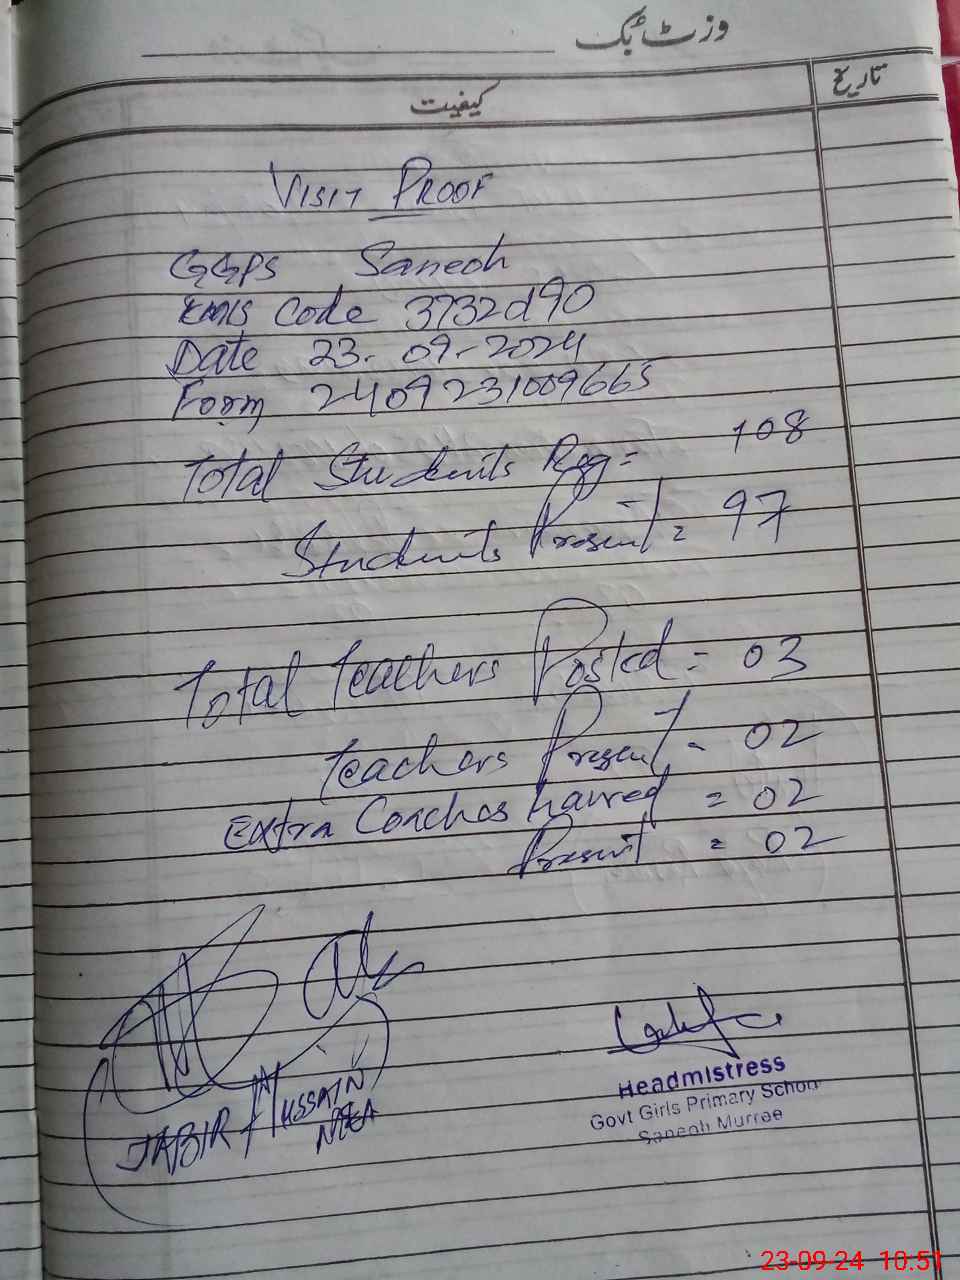 وزٹ بک
تاریخ
کیفیت
VISIT PROOF
GGPS Saneoh
EMIS Code 3732d90
Date 23-09-2024
Form 2409231009665
Total Students Reg = 108
Students Present = 97
Total Teachers Posted = 03
Teachers Present = 02
Extra Coaches haured = 02
Present = 02
JABIR HUSSAIN
Headmistress
Govt Girls Primary School
Saneoh Murree
23-09-24 10:51